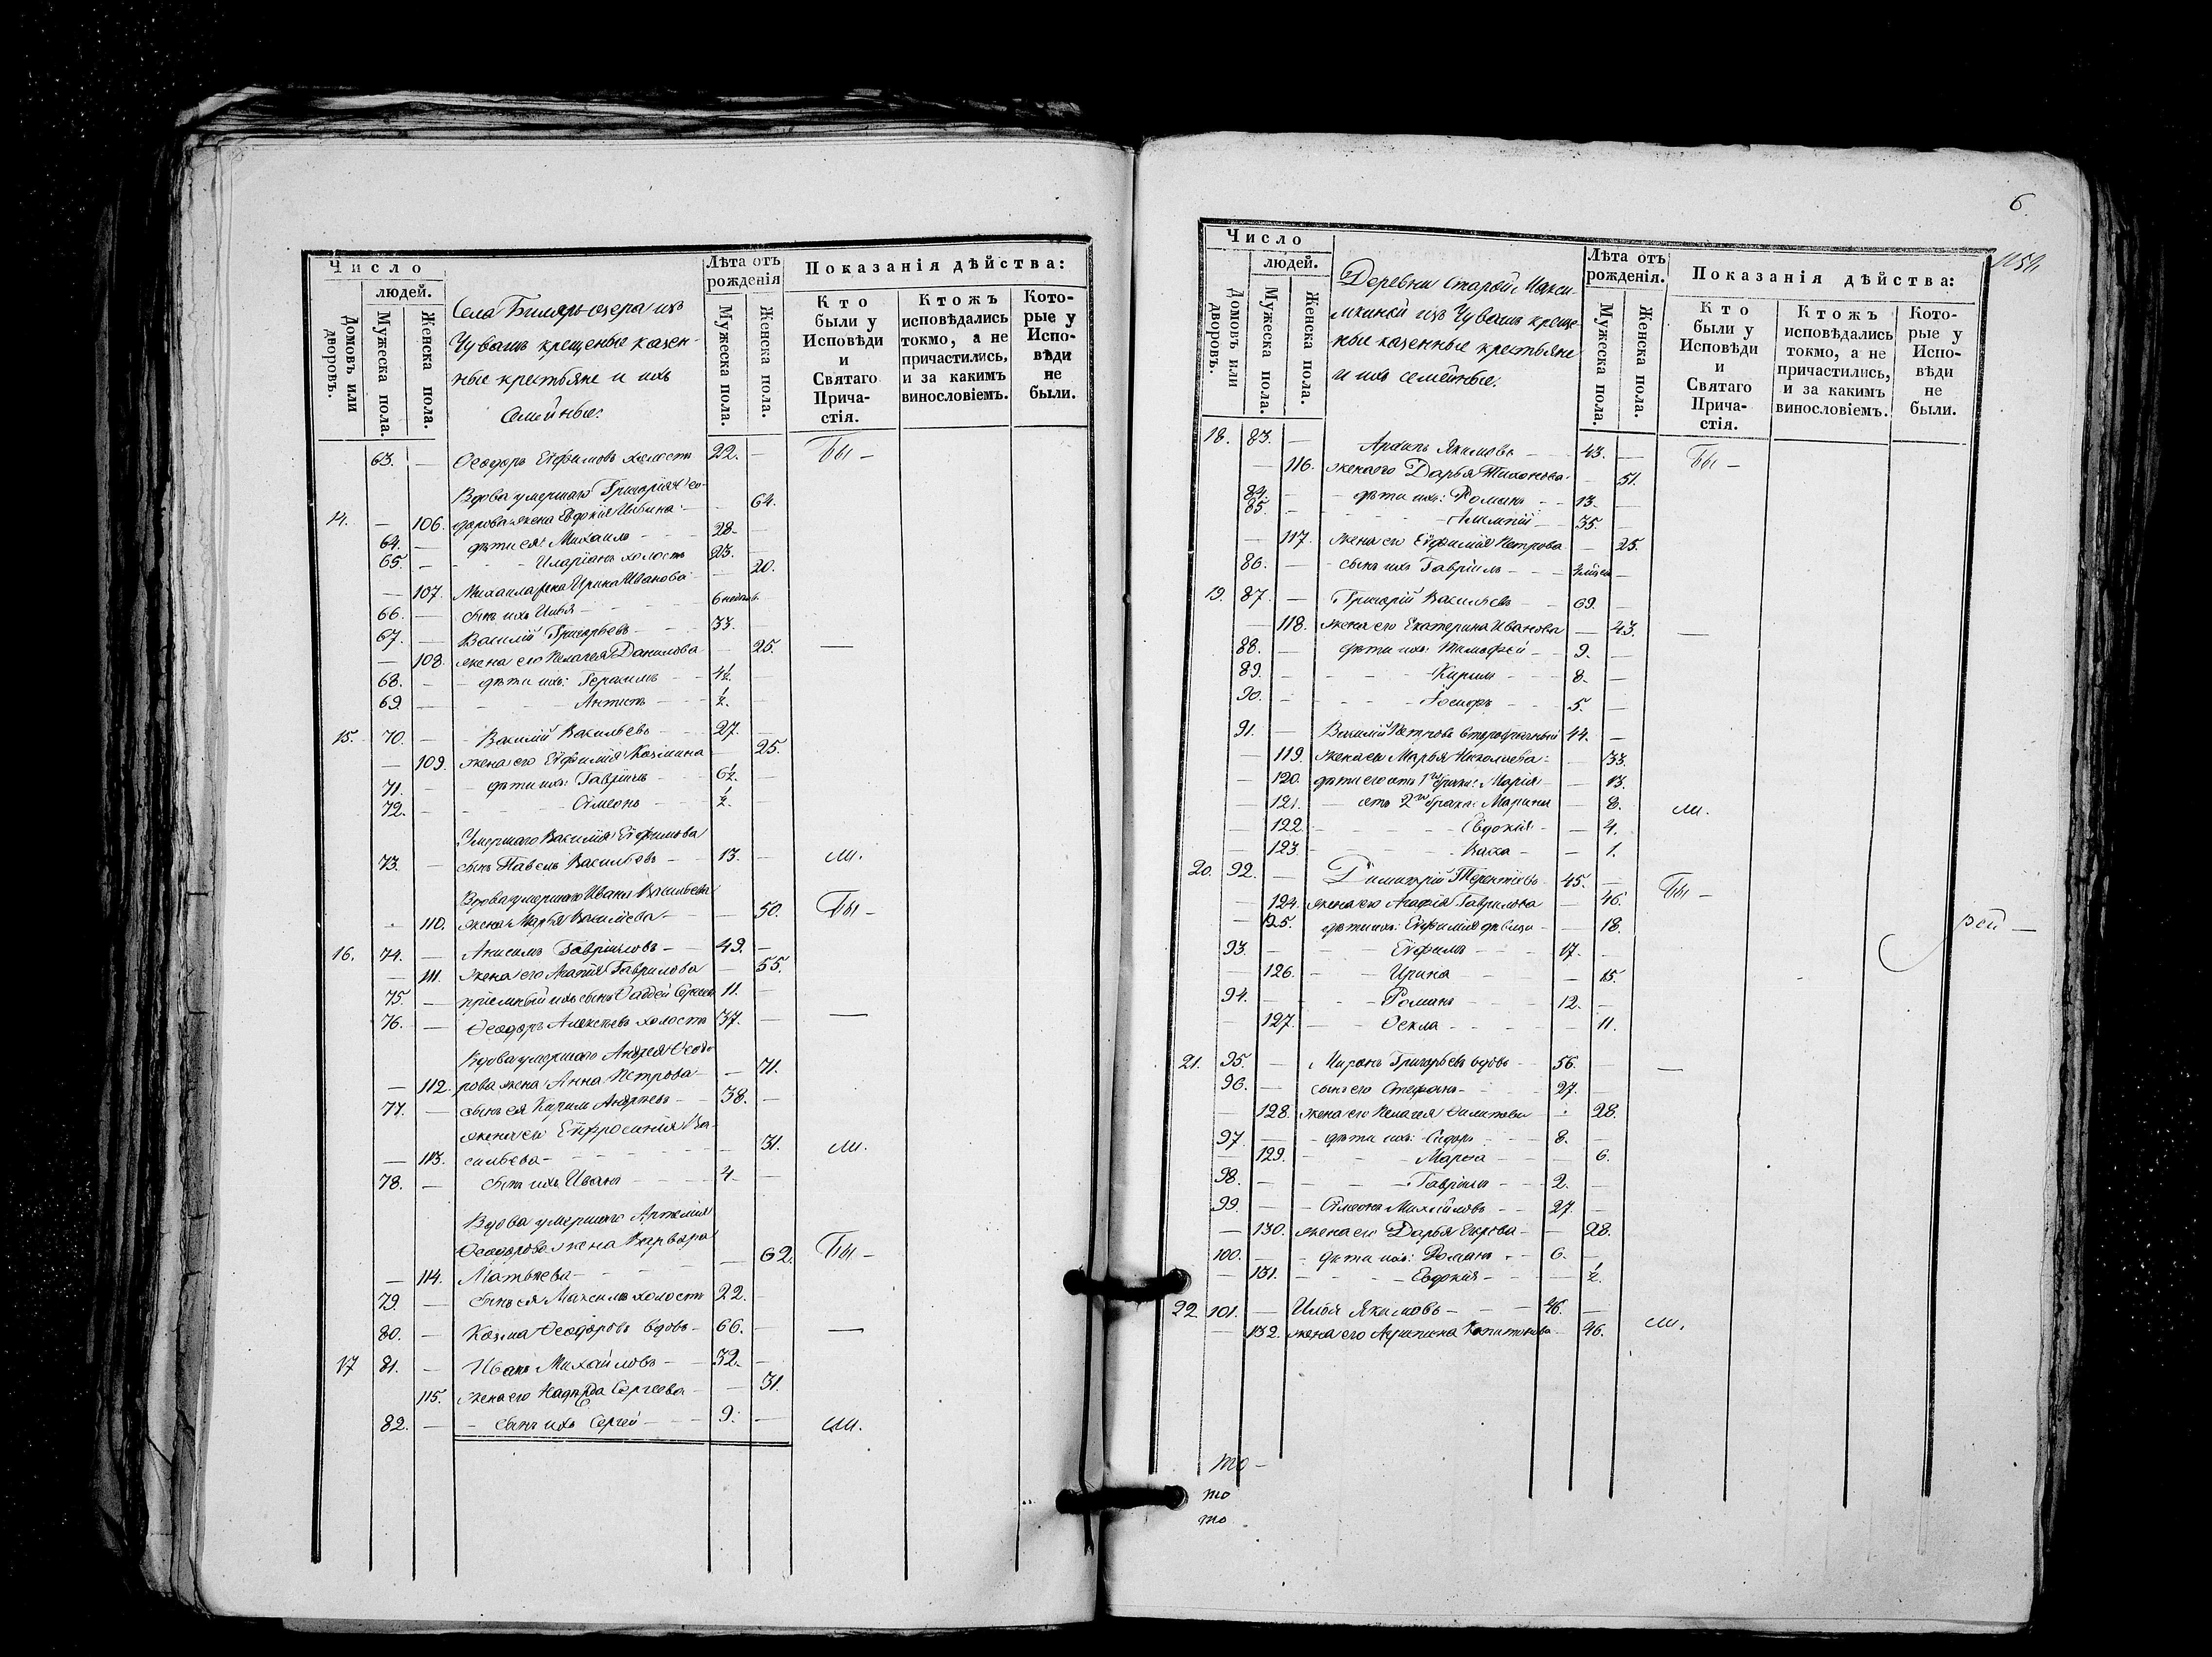 Число
людей.
Домовъ или дворовъ.
Мужеска пола.
Женска пола.
Села Биляръ-озера изъ
Чувашъ крещеные казен-
ные крестьяне и ихъ
семейные:
Лѣта отъ рожденія
Мужеска пола.
Женска пола.
Показанія дѣйства:
Кто были у Исповѣди и Святаго Причастія.
Ктожъ исповѣдались токмо, а не причастились, и за какимъ винословіемъ.
Которые у Исповѣди не были.
63. — Ѳеодоръ Евфимовъ холостъ 22. — Бы —
Вдова умершаго Григорія Ѳео-
14. — 106. дорова жена Евдокія — 64.
64. — дѣти ея: Михаилъ 28. —
65. — Иларіонъ холостъ 23. —
— 107. Михаила жена Ирина Иванова — 20.
66. — сынъ ихъ Илья 6
67. — Василій Григорьевъ 33. —
— 108. жена его Пелагея Данилова — 25. —
68. — дѣти ихъ: Герасимъ 4½. —
69. — ½. —
15. 70. — Василій Васильевъ 27. —
— 109. жена его Евфимія Козмина — 25.
71. — дѣти ихъ: Гавріилъ 6½. —
72. — Симеонъ ½. —
Умершаго Василія Евфимова
73. — сынъ Павелъ Васильевъ 13. — ли.
Вдова умершаго Ивана Васильева
110. жена Марья Васильева — 50. Бы —
16. 74. — Анисимъ Гавріиловъ 49. —
— 111. жена его Агапія Гаврилова — 55.
75. — пріемный ихъ сынъ Ѳаддей 11. —
76. — Ѳеодоръ Алексѣевъ холостъ 37. — —
Вдова умершаго Андрея Ѳеодо-
— 112. рова жена Анна Петрова — 71.
77. — сынъ ея Кирилъ Андреевъ 38. —
жена его Евфросинія Ва-
— 113. сильева — 31. ли.
78. — сынъ ихъ Иванъ 4. —
Вдова умершаго Артемія
Ѳеодорова жена Варвара
— 114. Матвѣева — 62. Бы —
79. — сынъ ея Максимъ холостъ 22. —
80. — Козма Ѳеодоровъ вдовъ 66. — —
17 81. — Иванъ Михайловъ 32. —
115. жена его Надежда Сергеева — 31.
82. — сынъ ихъ Сергей 9. — ли.
6.
Число
людей.
Домовъ или дворовъ.
Мужеска пола.
Женска пола.
Деревни Старой Макси-
мкиной изъ Чувашъ креще-
ные казенные крестьяне
и ихъ семейные:
Лѣта отъ рожденія.
Мужеска пола.
Женска пола.
Показанія дѣйства:
Кто были у Исповѣди и Святаго Причастія.
Ктожъ исповѣдались токмо, а не причастились, и за какимъ винословіемъ.
Которые у Исповѣди не были.
18. 83. — Архипъ Якимовъ 43. — Бы —
— 116. жена его Дарья Тихонова — 51.
84. — дѣти ихъ: Романъ 13. —
85. — 35. —
— 117. жена его Евфимія Петрова — 25.
86. — сынъ ихъ Гавріилъ —
19. 87. — Григорій Васильевъ 69. —
— 118. жена его Екатерина Иванова — 43. —
88. — дѣти ихъ: Тимофей 9. —
89. — Кирилъ 8. —
90. — 5. —
91. — Василій Петровъ второбрачный 44. —
— 119. жена его Марья Николаева — 33.
— 120. дѣти его отъ 1го брака: Марія — 13.
— 121. отъ 2го брака: Марина — 8. ли.
— 122. Евдокія — 4.
— 123. Васса — 1.
20. 92. — Димитрій Терентьевъ 45. — Бы —
124. жена его Агафія Гаврилова — 46.
— 125. дѣти ихъ: Евфимія дѣвица — 18.
93. — Евфимъ 17. —
— 126. Ирина — 15.
94. — Романъ 12. —
— 127. Ѳекла — 11.
21. 95. — Миронъ Григорьевъ вдовъ 56. — —
96. — сынъ его Стефанъ 27. —
— 128. жена его Пелагея Филипова 28.
97. — дѣти ихъ: Сидоръ 8. —
— 129. Марѳа — 6.
98. — Гавріилъ 2. —
99. — Симеонъ Михайловъ 27. —
— 130. жена его Дарья Егорова — 28.
100. — дѣти ихъ: Романъ 6. —
— 131. Евдокія — ½.
22. 101. — Илья Якимовъ 46. —
— 132. жена его Агрипина Капитонова 46. ли.
рей —
то —
то
то